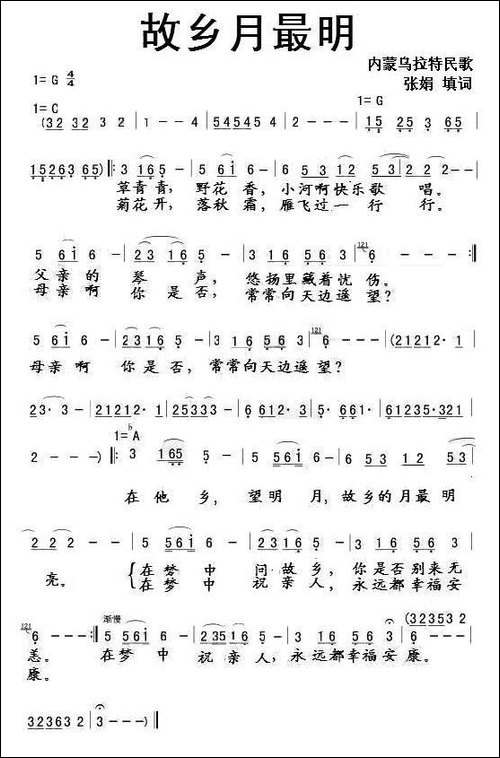 故乡月最明
内蒙乌拉特民歌
1=G 4/4
张娟 填词
1=C
1=G
(32 32 3 2 | 1 - - 4 | 545454 5 | 2 - - - | 15 25 3 65 |
152633 65) ‖: 3 165 - | 5 65i 6 - | 5 6 12 53 | 2 - - - |
草青青, 野花 香, 小河啊快乐歌 唱。
菊花开, 落秋 霜, 雁飞过一 行 行。
5 6i 6 - | 23 16 5 - | 3 16 56 3 | 6 - - - :‖
父亲的 琴 声, 悠扬里藏着忧伤。
母亲啊 你是否, 常常向天边遥 望?
5 5i 6 - | 2316 5 - | 3 1 6 5 6 3 | 6 - - | (21212· 1 |
母亲啊 你是否, 常常向天边遥望?
23· 3· | 21212· 1 | 253333 - | 6 612 3· | 5· 661· | 61235·321 |
1=♭A
2 - - -) ‖: 3 165 5 - | 5 561 3 - | 6 53 5 612 |
在他乡, 望明 月, 故乡的月最明
2 2 2 - | 5 561 6 - | 2 3516 5 - | 3 16 56 3 |
亮。 在梦中 问故乡, 你是否别来无
在梦中 祝亲人, 永远都幸福安
渐慢
(32353 2
6 - - :‖ 5 556i 6 - | 2351 6 5 - | 3 165 6 3 | 6 - - - |
恙。 在梦中 祝亲人, 永远都幸福安康。
康。
32363 2 | 3 - -) ‖